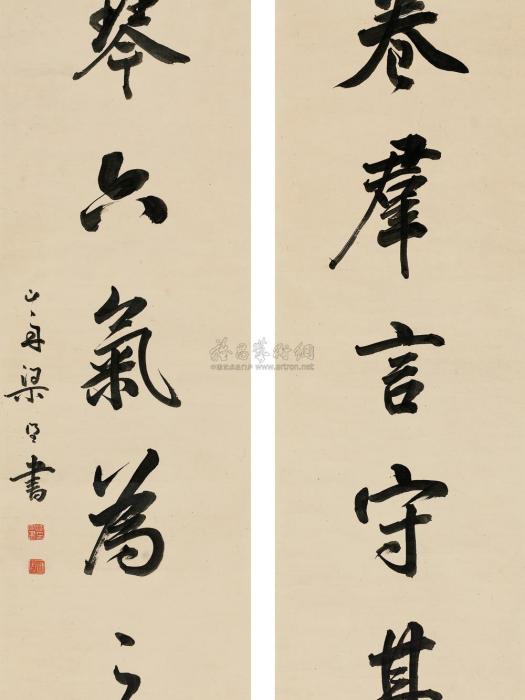 卷羣言守其
琴六氣為之
山舟梁同書
雅昌藝術網
www.artron.net